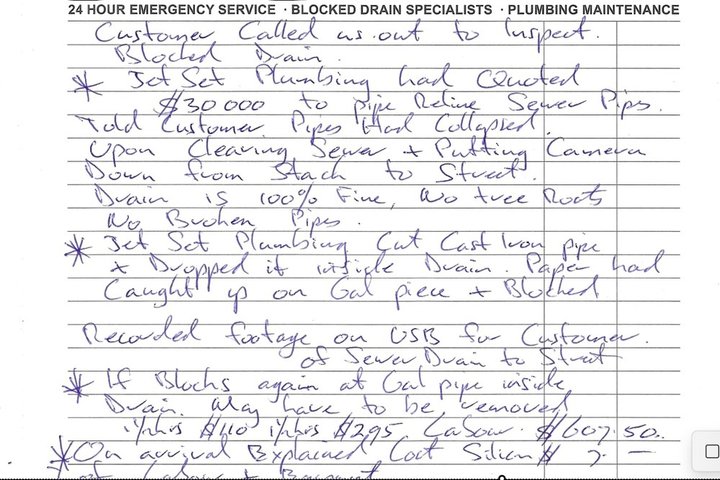 24 HOUR EMERGENCY SERVICE · BLOCKED DRAIN SPECIALISTS · PLUMBING MAINTENANCE
Customer Called us out to Inspect.
Blocked Drain.
* Jet Set Plumbing had Quoted
$30000 to pipe Reline Sewer Pipes.
Told Customer Pipes Had Collapsed.
Upon Clearing Sewer + Putting Camera
Down from Stack to Street.
Drain is 100% Fine, No tree Roots
No Broken Pipes.
* Jet Set Plumbing Cut Cast Iron pipe
+ Dropped it inside Drain. Paper had
Caught up on Gal piece + Blocked
Recorded footage on USB for Customer.
of Sewer Drain to Street
* If Blocks again at Gal pipe inside
Drain. May have to be removed
1½hrs $110 1½hrs $295 Labour. $607.50.
* On arrival Explained Cost $ -
of Labour +